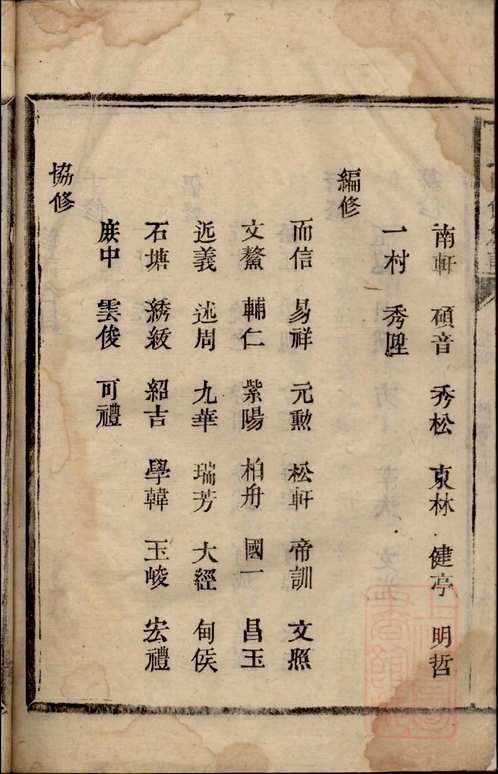 南軒 碩音 秀松 東林 健亭 明哲
一村 秀陞
編修
而信 易祥 元勲 松軒 帝訓 文照
文鰲 輔仁 紫陽 柏舟 國一 昌玉
近義 述周 九華 瑞芳 大經 甸侯
石塘 綉紋 紹吉 學韓 玉峻 宏禮
族中 雲俊 可禮
協修